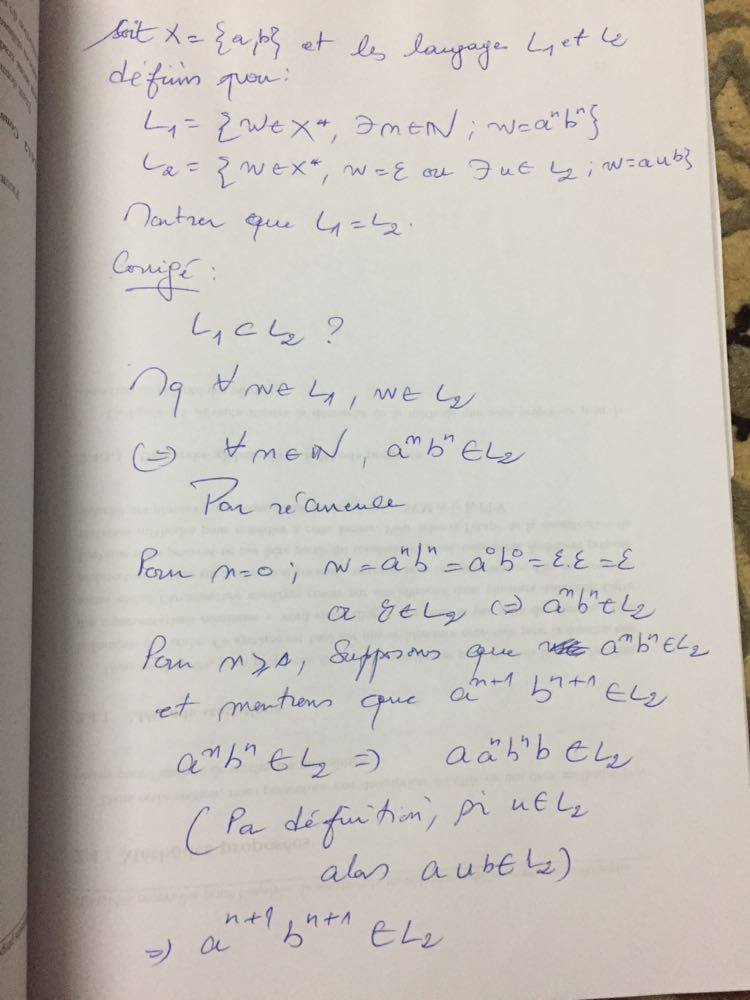 Soit X = {a,b} et les langage L₁ et L₂
définis par :
L₁ = {w ∈ X*, ∃n ∈ ℕ ; w = aⁿbⁿ}
L₂ = {w ∈ X*, w = ε ou ∃u ∈ L₂ ; w = aub}
Montrer que L₁ = L₂.
Corrigé :
L₁ ⊂ L₂ ?
Mq ∀w ∈ L₁, w ∈ L₂
(=) ∀n ∈ ℕ, aⁿbⁿ ∈ L₂
Par récurence
Pour n=0 ; w = aⁿbⁿ = a⁰b⁰ = ε.ε = ε
a ε ∈ L₂ (=) aⁿbⁿ ∈ L₂
Pour n ⩾ 1, Supposons que aⁿbⁿ ∈ L₂
et montrons que aⁿ⁺¹ bⁿ⁺¹ ∈ L₂
aⁿbⁿ ∈ L₂ => a aⁿbⁿ b ∈ L₂
(Pa définition, si u ∈ L₂
alos a u b ∈ L₂)
=> aⁿ⁺¹ bⁿ⁺¹ ∈ L₂